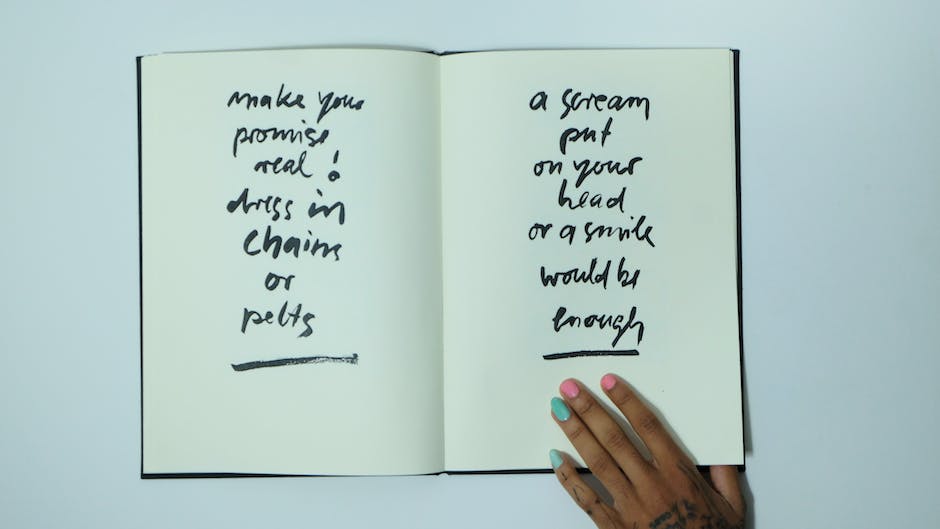 make your
promise
real!
dress in
chains
or
pelts
a scream
put
on your
head
or a smile
would be
enough